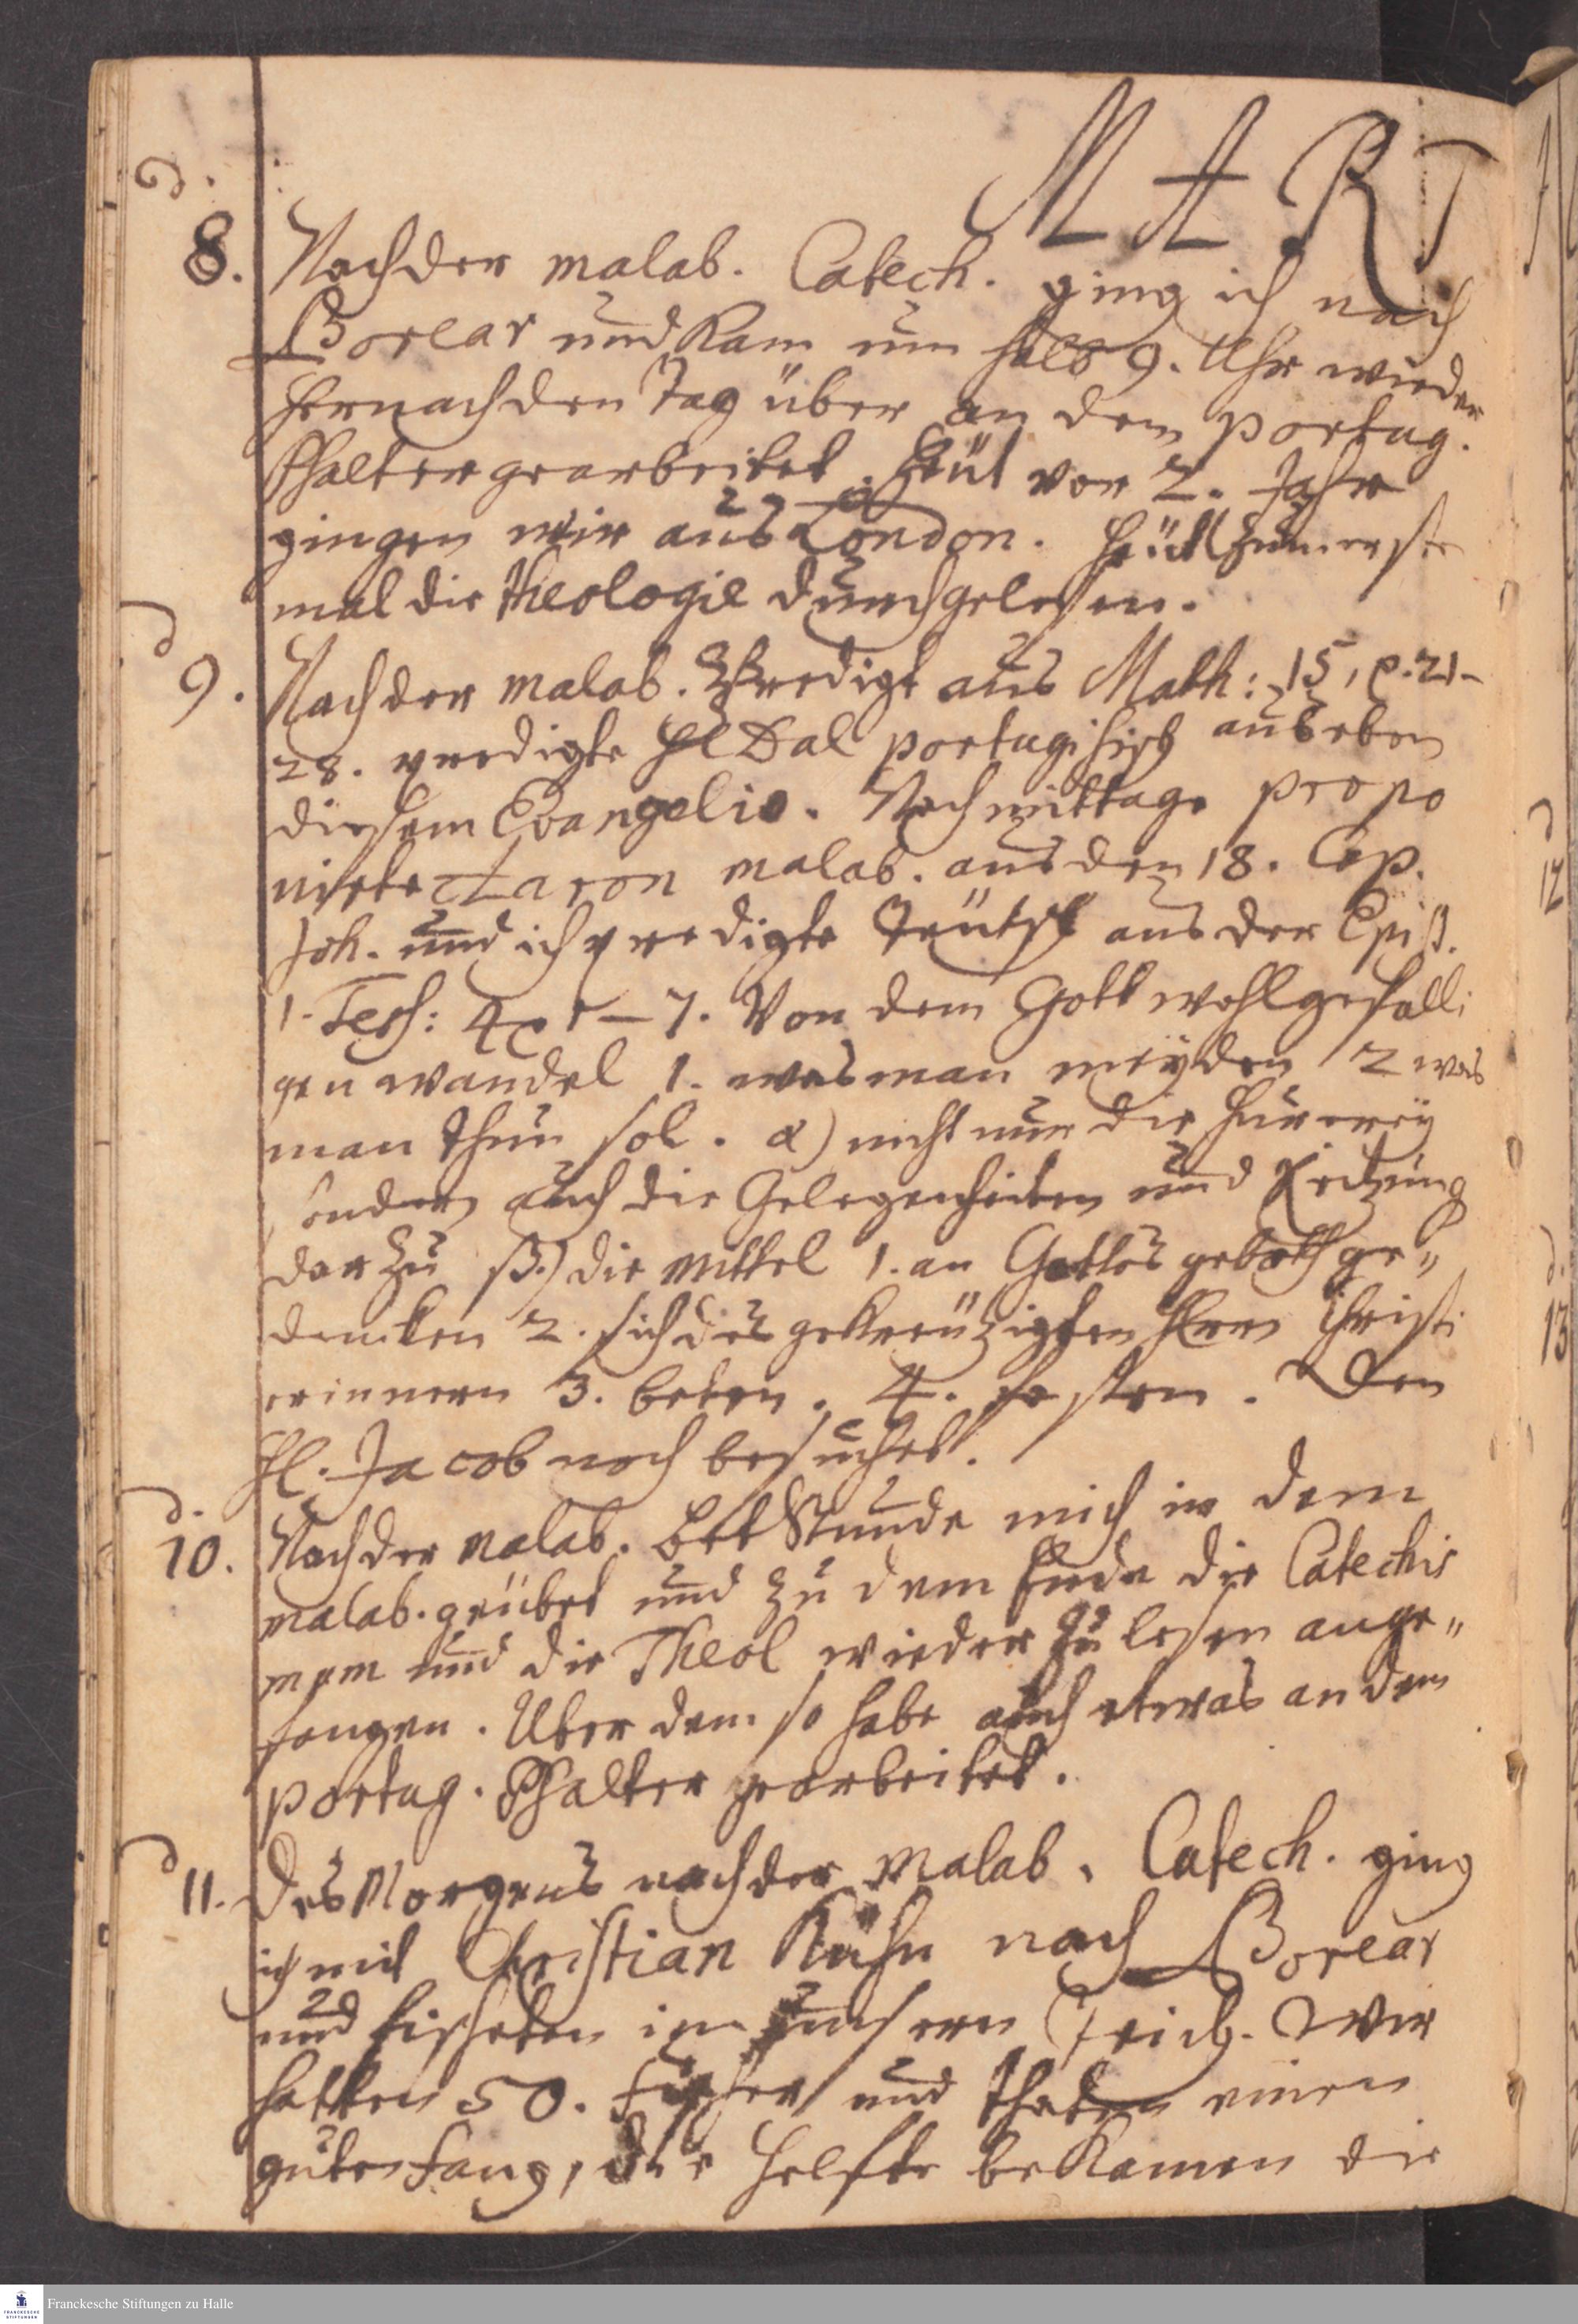 MART
d.
8. Nach der malab. Catech. ging ich nach
Borear und kam um halb 9. Uhr wieder
hernach den Tag über an dem portug.
Psalter gearbeitet. Heüt vor 2. Jahr
gingen wir aus London. Heüt zum erste
mal die Theologie durchgelesen.
d
9. Nach der malab. Predigt aus Math: 15, v. 21-
28. predigte H Dal portugisisch aus eben
diesem Evangelio. Nachmittage propo
nirte Aaron malab. aus den 18. Cap.
Joh. und ich predigte Teütsch aus der Epist.
1. Tess: 4 v 1-7. Von dem Gott wohlgefälli
gen wandel 1. was man meÿden 2 was
man thun sol. α) nicht nur die Hurereÿ
sondern auch die Gelegenheiten und Reitzung
dar zu β.) die mittel 1. an Gottes geboth ge„
dencken 2. sich des gekreützigten Herrn Christi
erinnern 3. beten. 4. fasten. Den
H. Jacob noch besuchet.
d.
10. Nach der malab. Bet Stunde mich in dem
malab. geübet und zu dem Ende die Catechis
mum und die Theol wieder zu lesen ange„
fangen. Uber dem so habe auch etwas an dem
portug. Psalter gearbeitet.
d
11. Des Morgens nach der malab. Catech. ging
ich mit Christian Kühn nach Borear
und fischeten in unsern Teich. Wir
hatten 50. Fischer und thaten einen
guten fang, die Helfte bekamen die
d
12
d.
13
Franckesche Stiftungen zu Halle